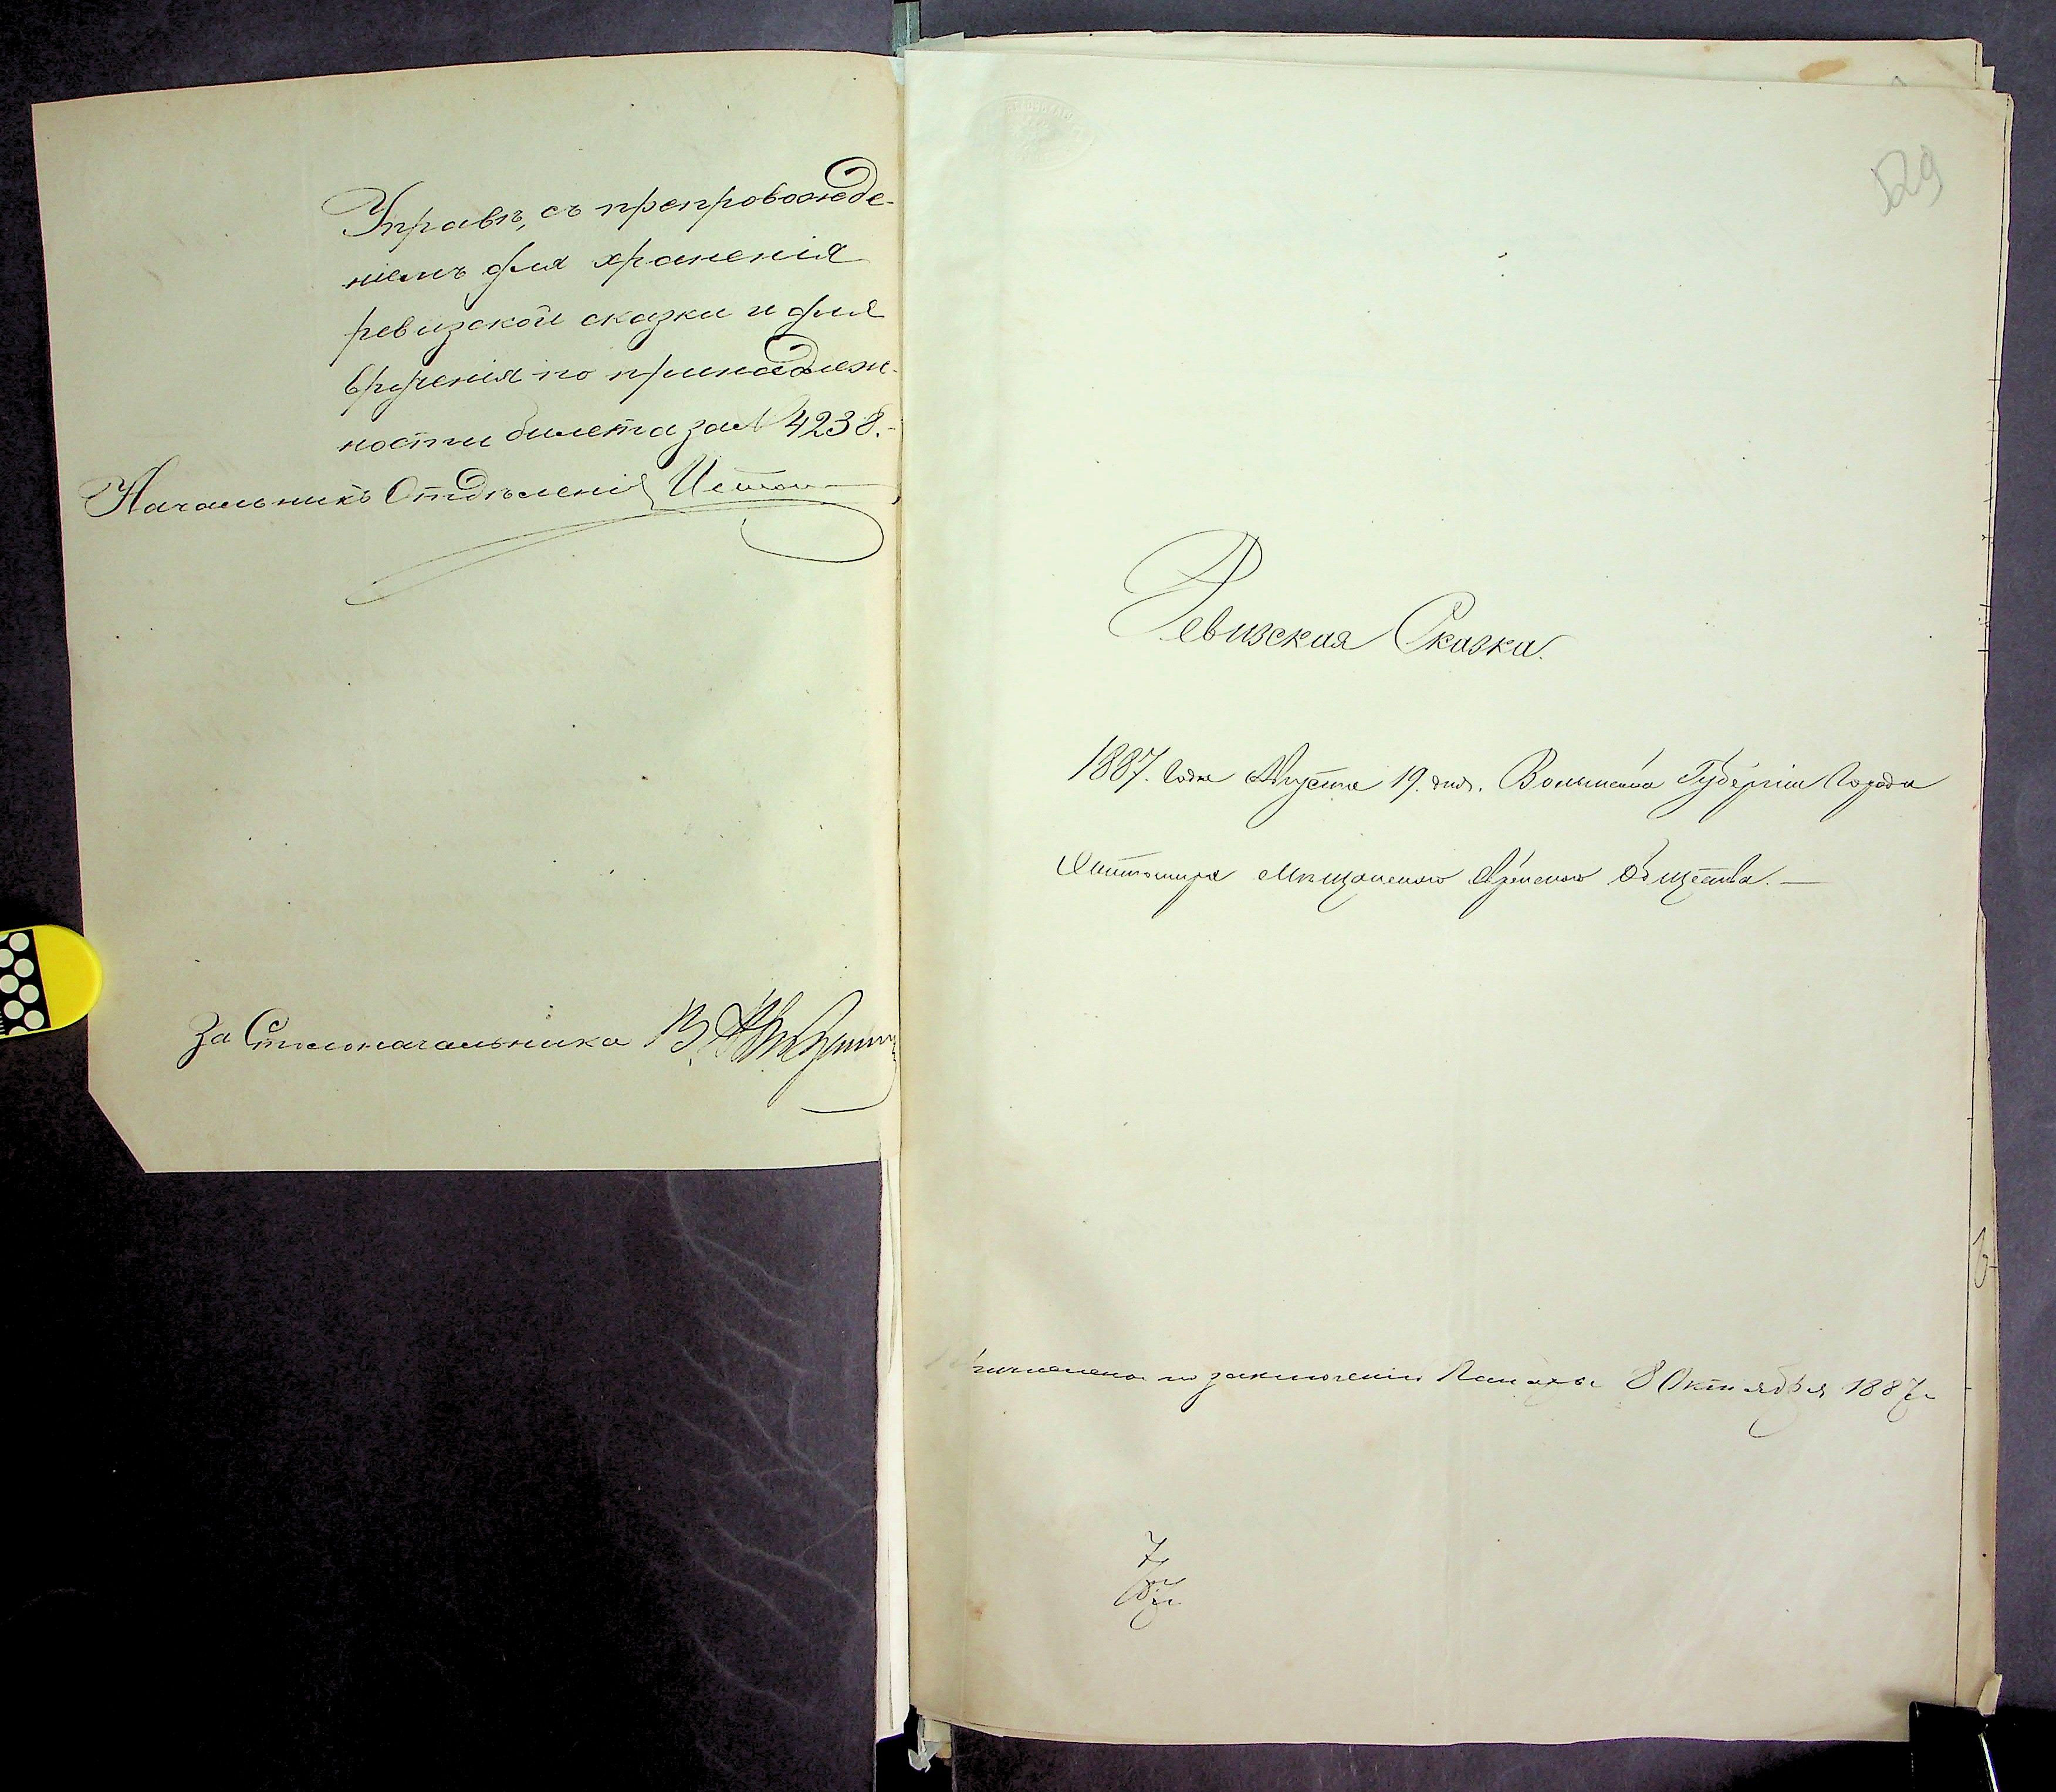 Управѣ, съ препровожде-
ніемъ для храненія
ревизской сказки и для
врученія по принадлеж-
ности билета за № 4238.-
Начальникъ Отдѣленія
За Столоначальника В.
529
Ревизская Сказка.
1887. Года Августа 19. дня. Волынской Губерніи Города
Житомира Мѣщанского Еврейского Общества. —
по заключенію Палаты 8 Октября 1887 г.